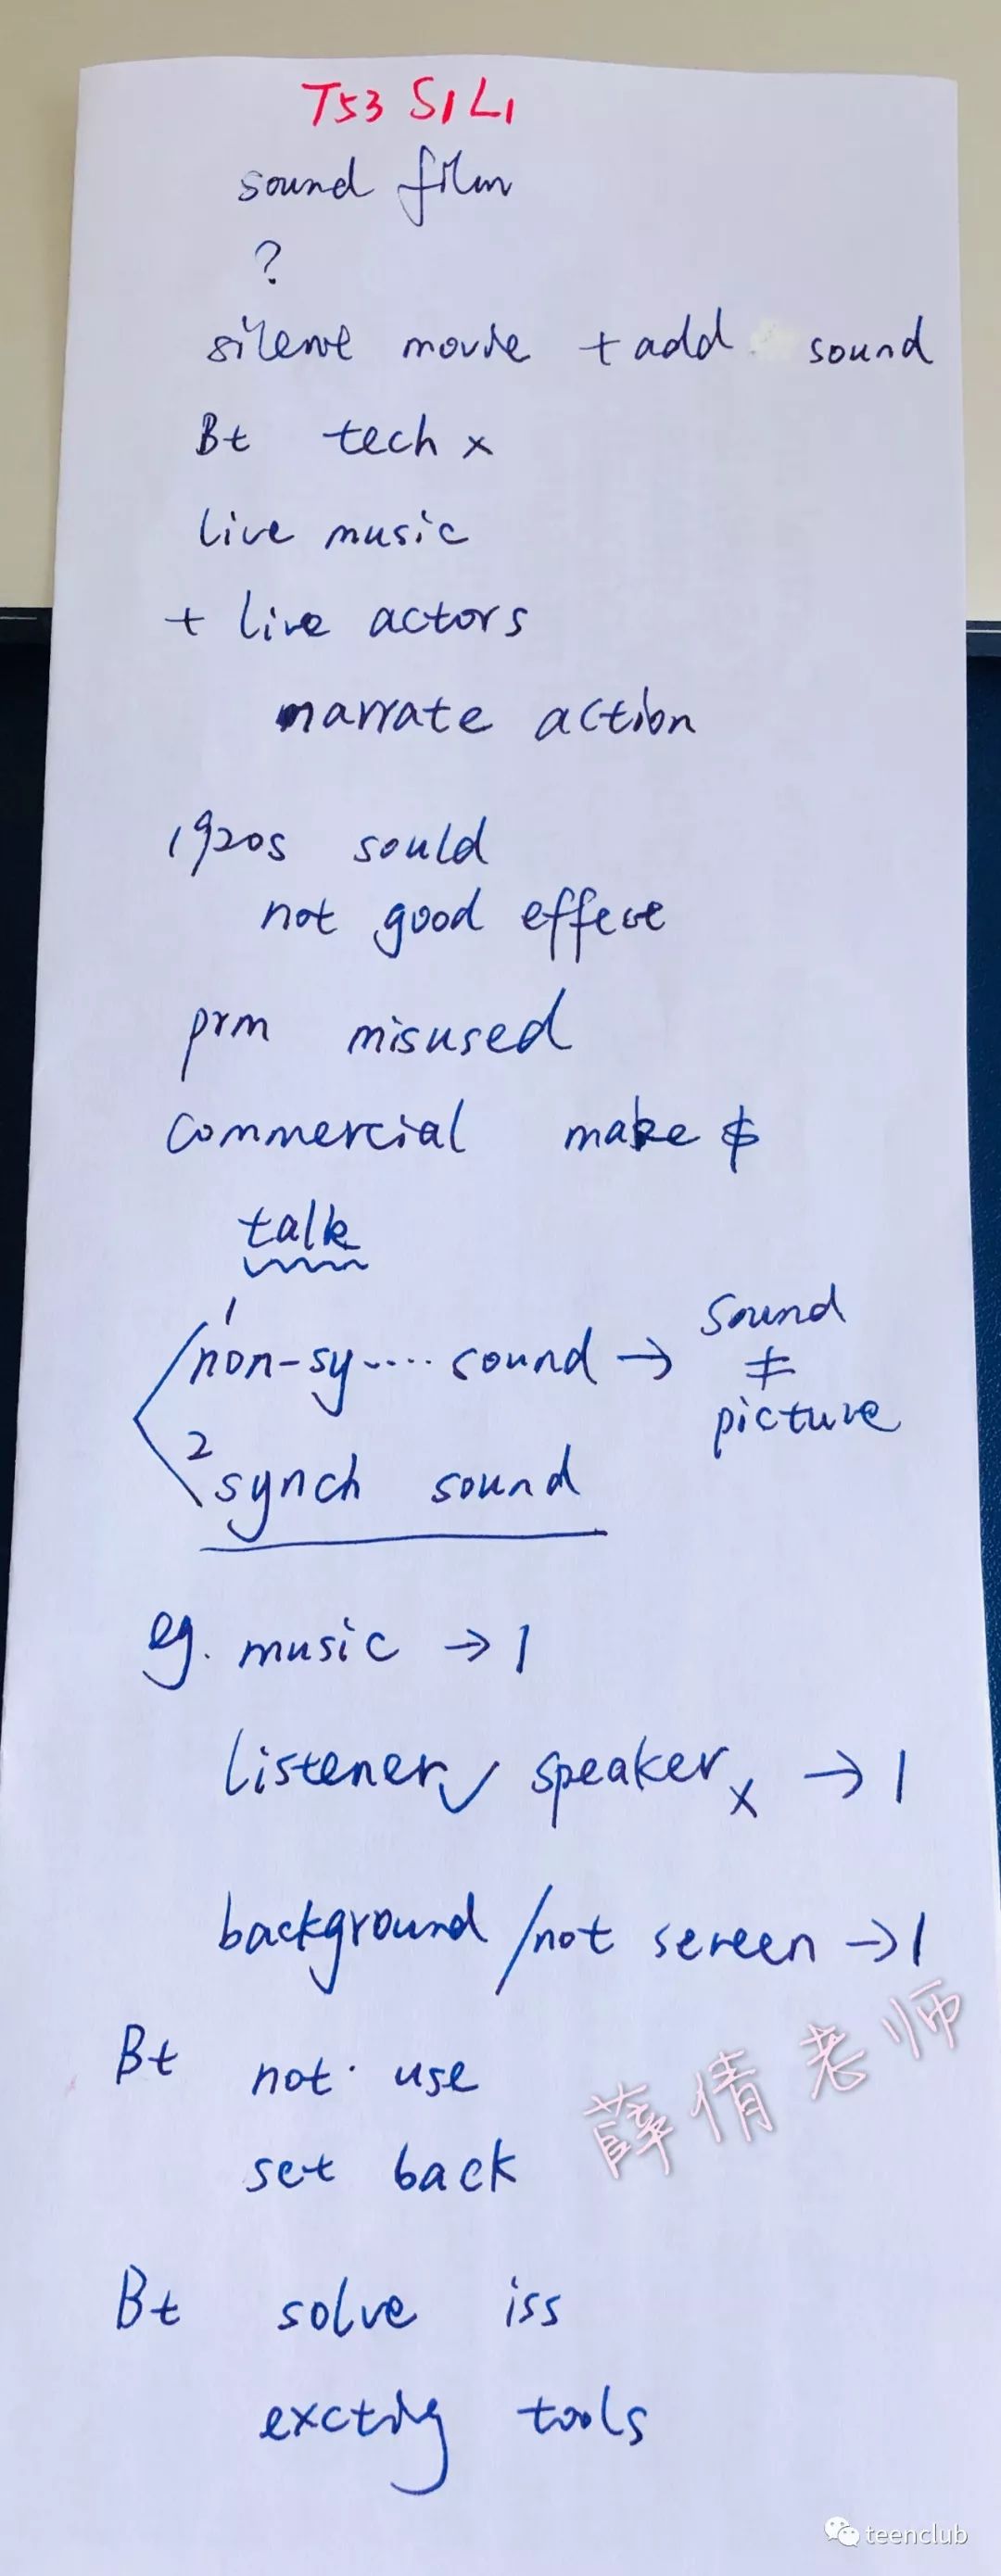 T53 S1L1
sound film
?
silent movie + add sound
Bt tech x
live music
+ live actors
narrate action
1920s sould
not good effect
prm misused
commercial make $
talk
1 non-sy.... sound → sound ≠ picture
2 synch sound
eg. music → 1
listener ✓ speaker x → 1
background / not screen → 1
Bt not use
set back
薛倩老师
Bt solve iss
excting tools
teenclub